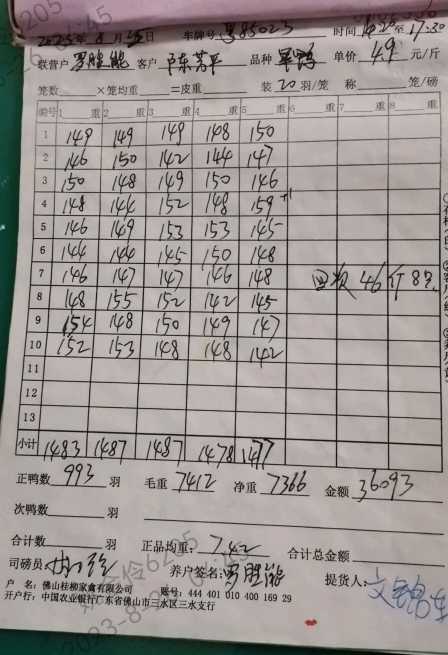 车牌号 粤85023 时间 16:25至17:30
联营户 罗胜能 客户 陈芳平 品种 旱鸭 单价 4.9 元/斤
笼数 ×笼均重 =皮重 装 20 羽/笼 称 笼/磅
编号 1 重 2 重 3 重 4 重 5 重 6 重 7 重 8 重
1 149 149 149 148 150
2 146 150 142 144 147
3 150 148 149 150 146
4 148 144 152 148 159 +1
5 146 149 153 153 145
6 144 144 145 150 148
7 146 147 147 146 148 46斤
8 148 155 152 142 145
9 154 148 150 149 147
10 152 153 148 148 142
11
12
13
小计 1483 1487 1487 1478 1477
正鸭数 993 羽 毛重 7412 净重 7366 金额 36093
次鸭数 羽
合计数 羽 正品均重: 7.42 合计总金额
司磅员 养户签名: 罗胜能 提货人:
户 名: 佛山桂柳家禽有限公司 账号: 444 401 010 400 169 29
开户行: 中国农业银行广东省佛山市三水区三水支行